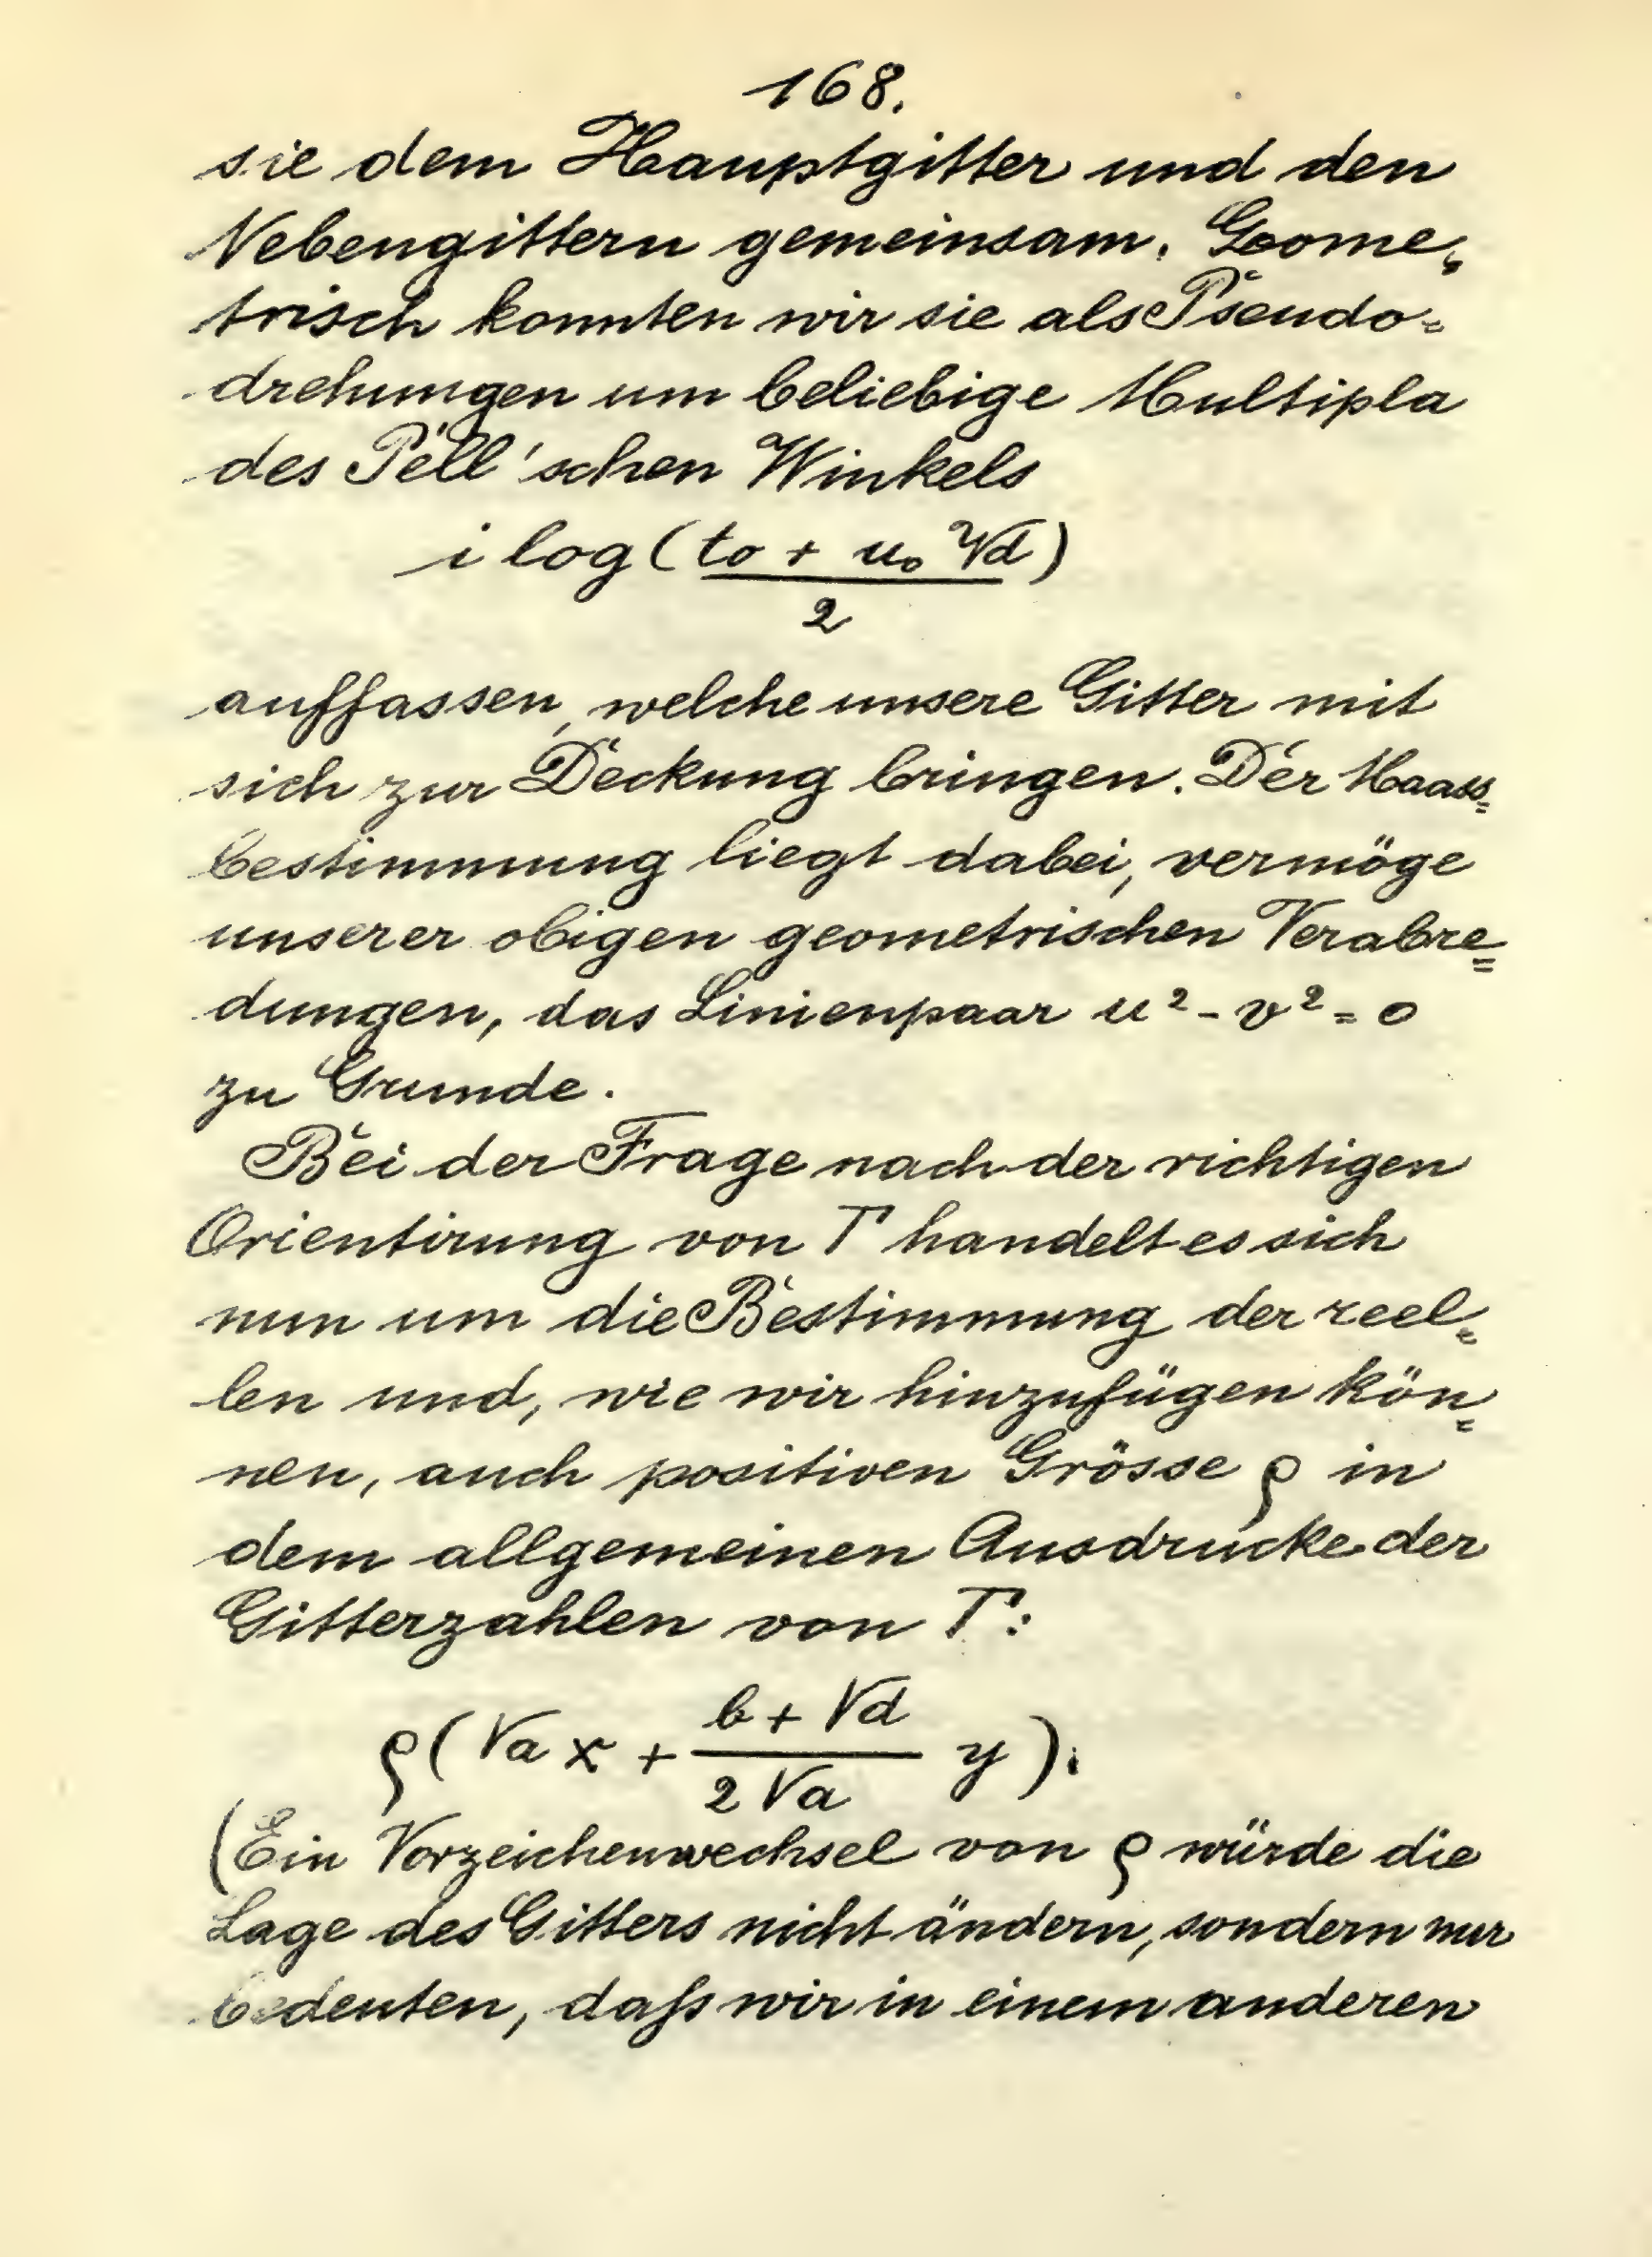 168.
sie dem Hauptgitter und den
Nebengittern gemeinsam. Geome-
trisch konnten wir sie als Pseudo-
drehungen um beliebige Multipla
des Pell'schen Winkels
i log (t₀ + u₀ √d)
2
auffassen, welche unsere Gitter mit
sich zur Deckung bringen. Der Maass-
bestimmung liegt dabei, vermöge
unserer obigen geometrischen Verabre-
dungen, das Linienpaar u² - v² = 0
zu Grunde.
Bei der Frage nach der richtigen
Orientirung von Γ handelt es sich
nun um die Bestimmung der reel-
len und, wie wir hinzufügen kön-
nen, auch positiven Grösse ρ in
dem allgemeinen Ausdrucke der
Gitterzahlen von Γ:
ρ(√a x + (b + √d)/(2√a) y).
(Ein Vorzeichenwechsel von ρ würde die
Lage des Gitters nicht ändern, sondern nur
bedeuten, daſs wir in einem anderen